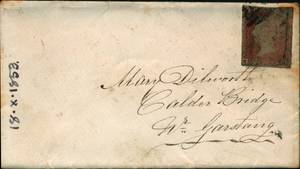 Mary Dilworth
Calder Bridge
Nr. Garstang
18.X.1853